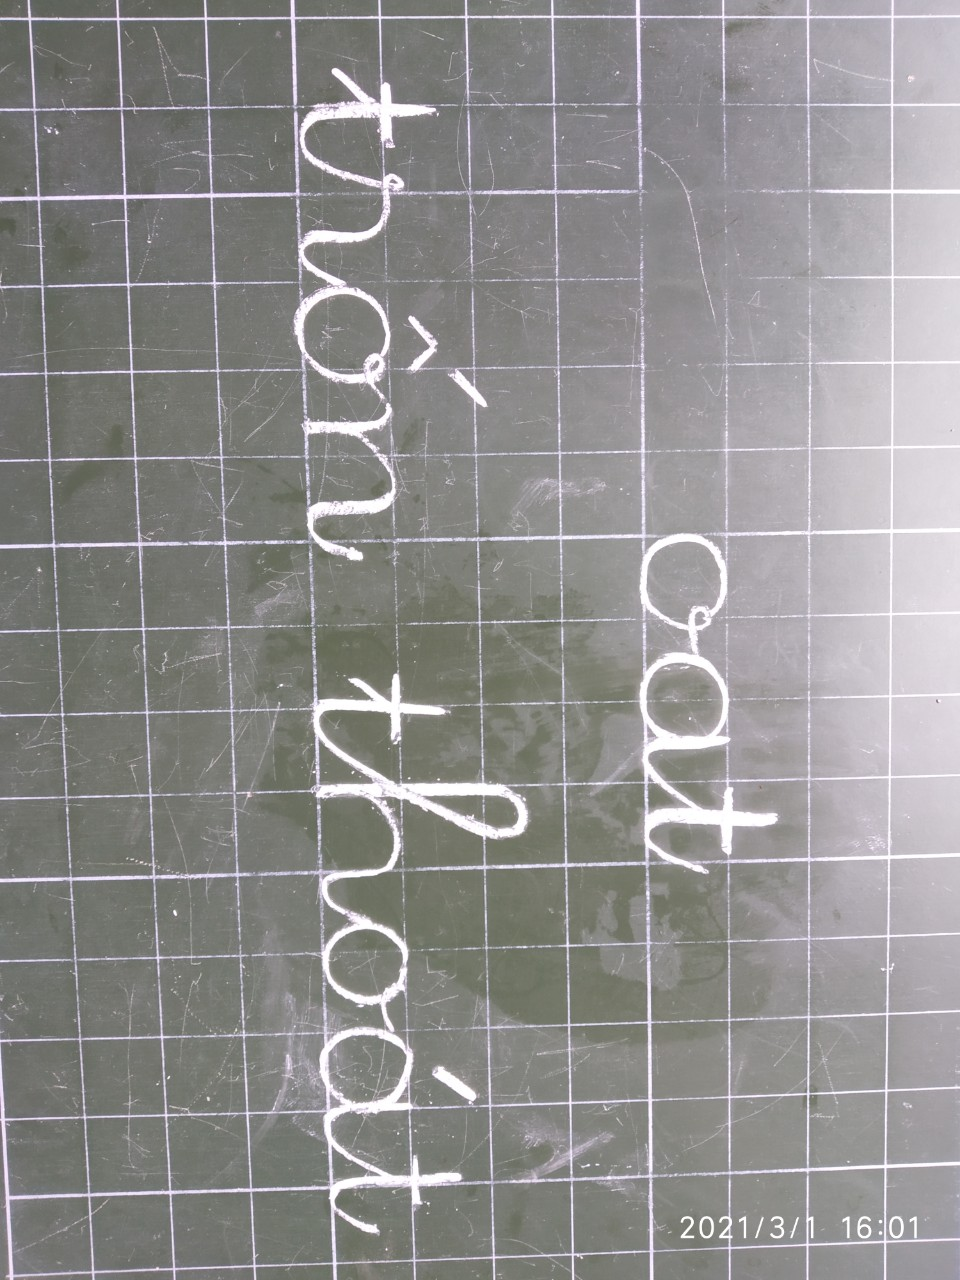 oat
trốn thoát
2021/3/1 16:01